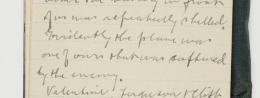 of us was repeatedly shelled.
Evidently the plane was
one of ours that was captured
by the enemy.
Valentine, Ferguson &